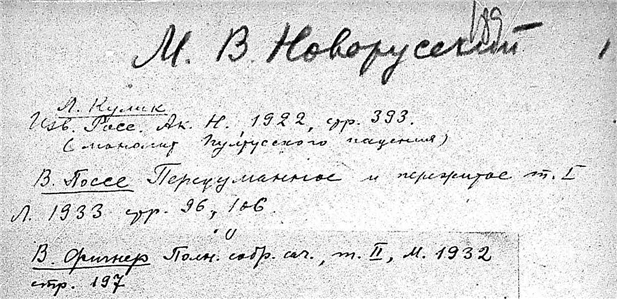 189
М. В. Новорусский
Л. Кулик
Изв. Росс. Ак. Н. 1922, стр. 393.
(монолит падения)
В. Поссе Передуманное и пережитое т. I
Л. 1933 стр. 96, 106
В. Фигнер Полн. собр. соч., т. II, М. 1932
стр. 197